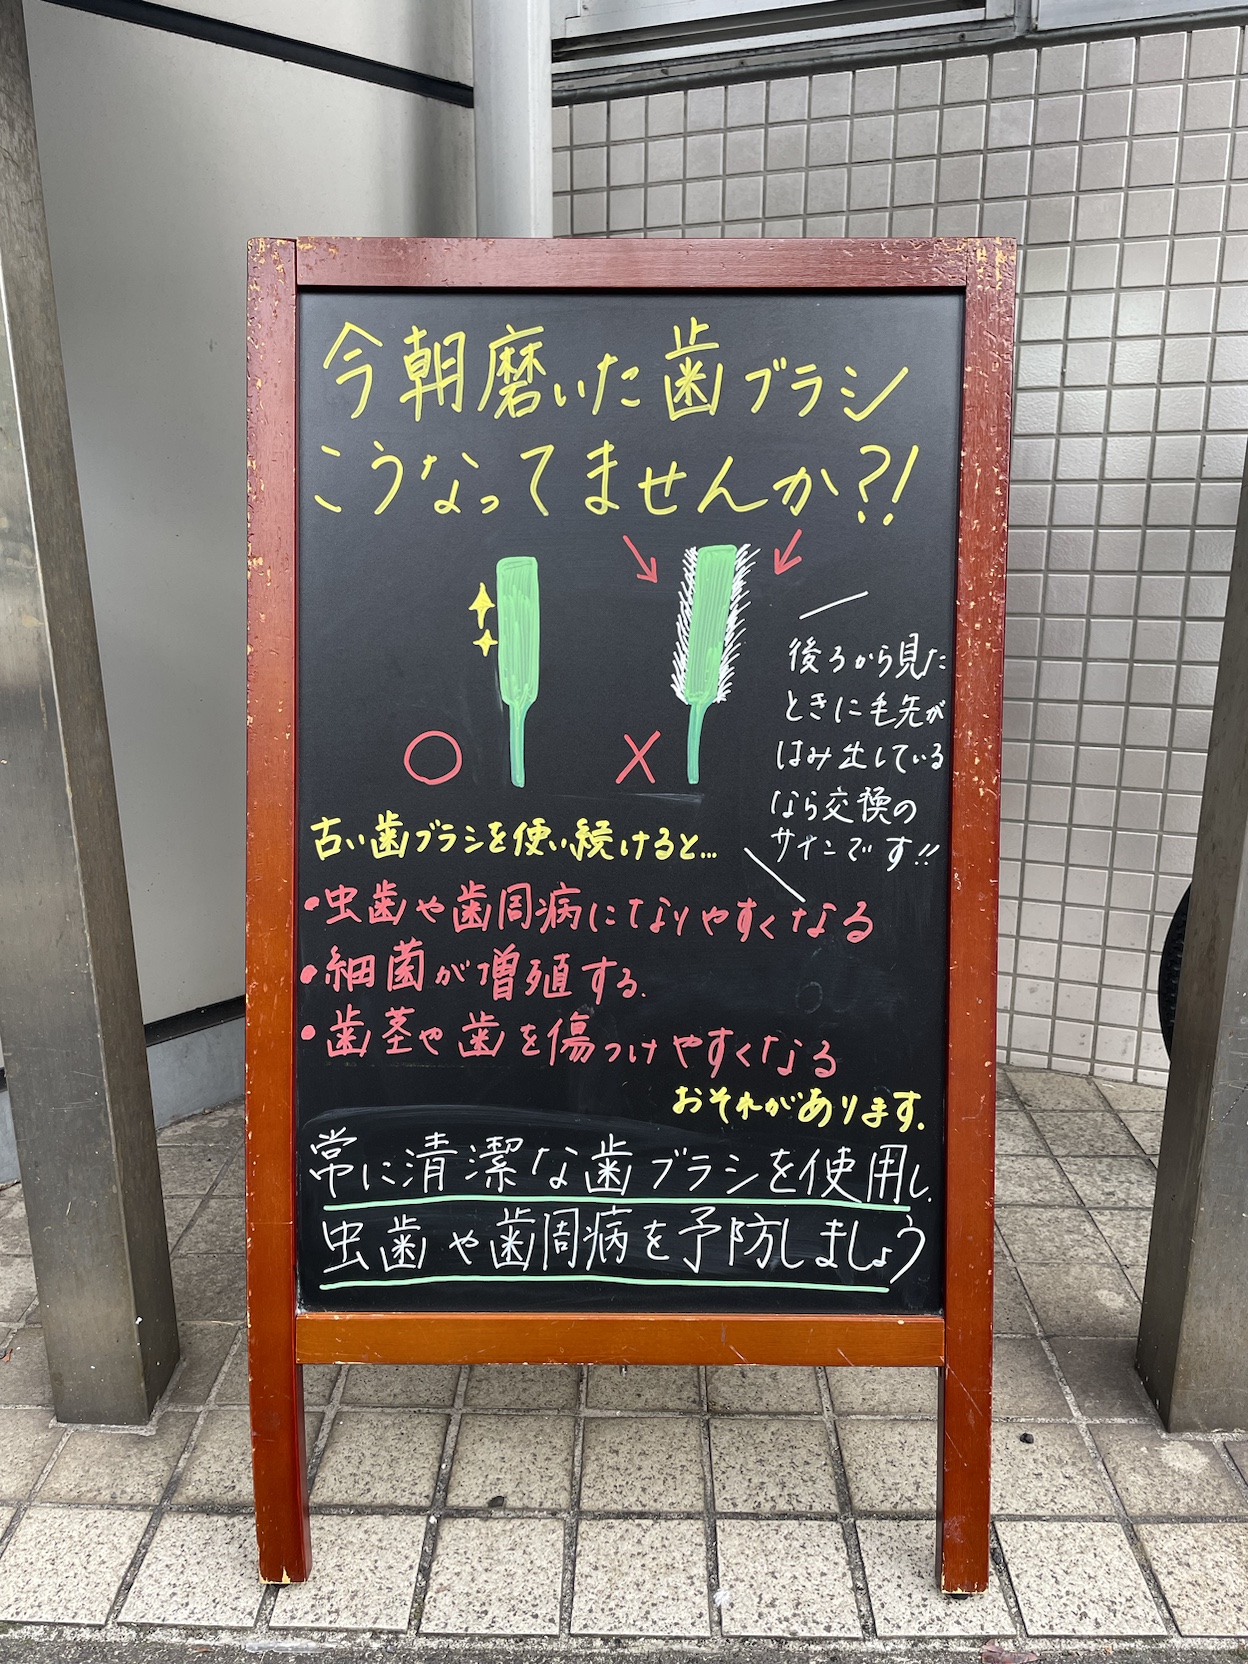 今朝磨いた歯ブラシ
こうなってませんか?!
後ろから見た
ときに毛先が
はみ出している
なら交換の
サインです!!
○
×
古い歯ブラシを使い続けると…
・虫歯や歯周病になりやすくなる
・細菌が増殖する.
・歯茎や歯を傷つけやすくなる
おそれがあります.
常に清潔な歯ブラシを使用し、
虫歯や歯周病を予防しましょう